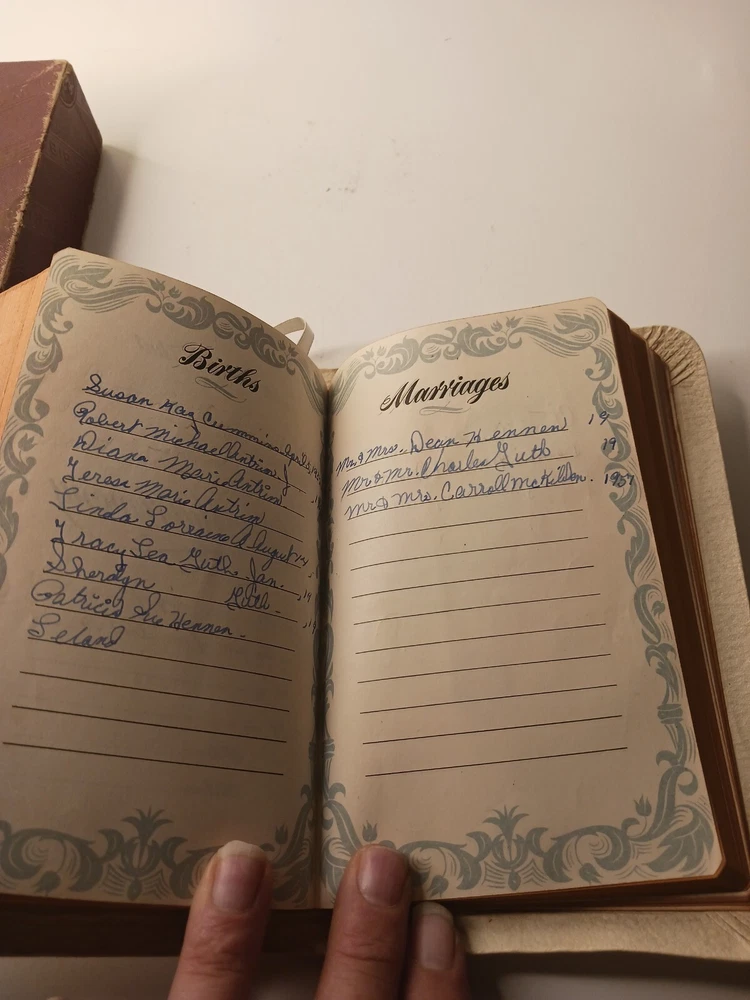 Births
Susan Kay Cummins April
Robert Michael Antrim J
Diana Marie Antrim
Teresa Marie Antrim
Linda Lorraine A August
Tracy Lea Guth Jan.
Sherolyn Guth
Patricia Sue Hennen
Leland
Marriages
Mr & Mrs. Dean Hennen 19
Mr & Mr. Charles Guth 19
Mr & Mrs. Carroll 1957